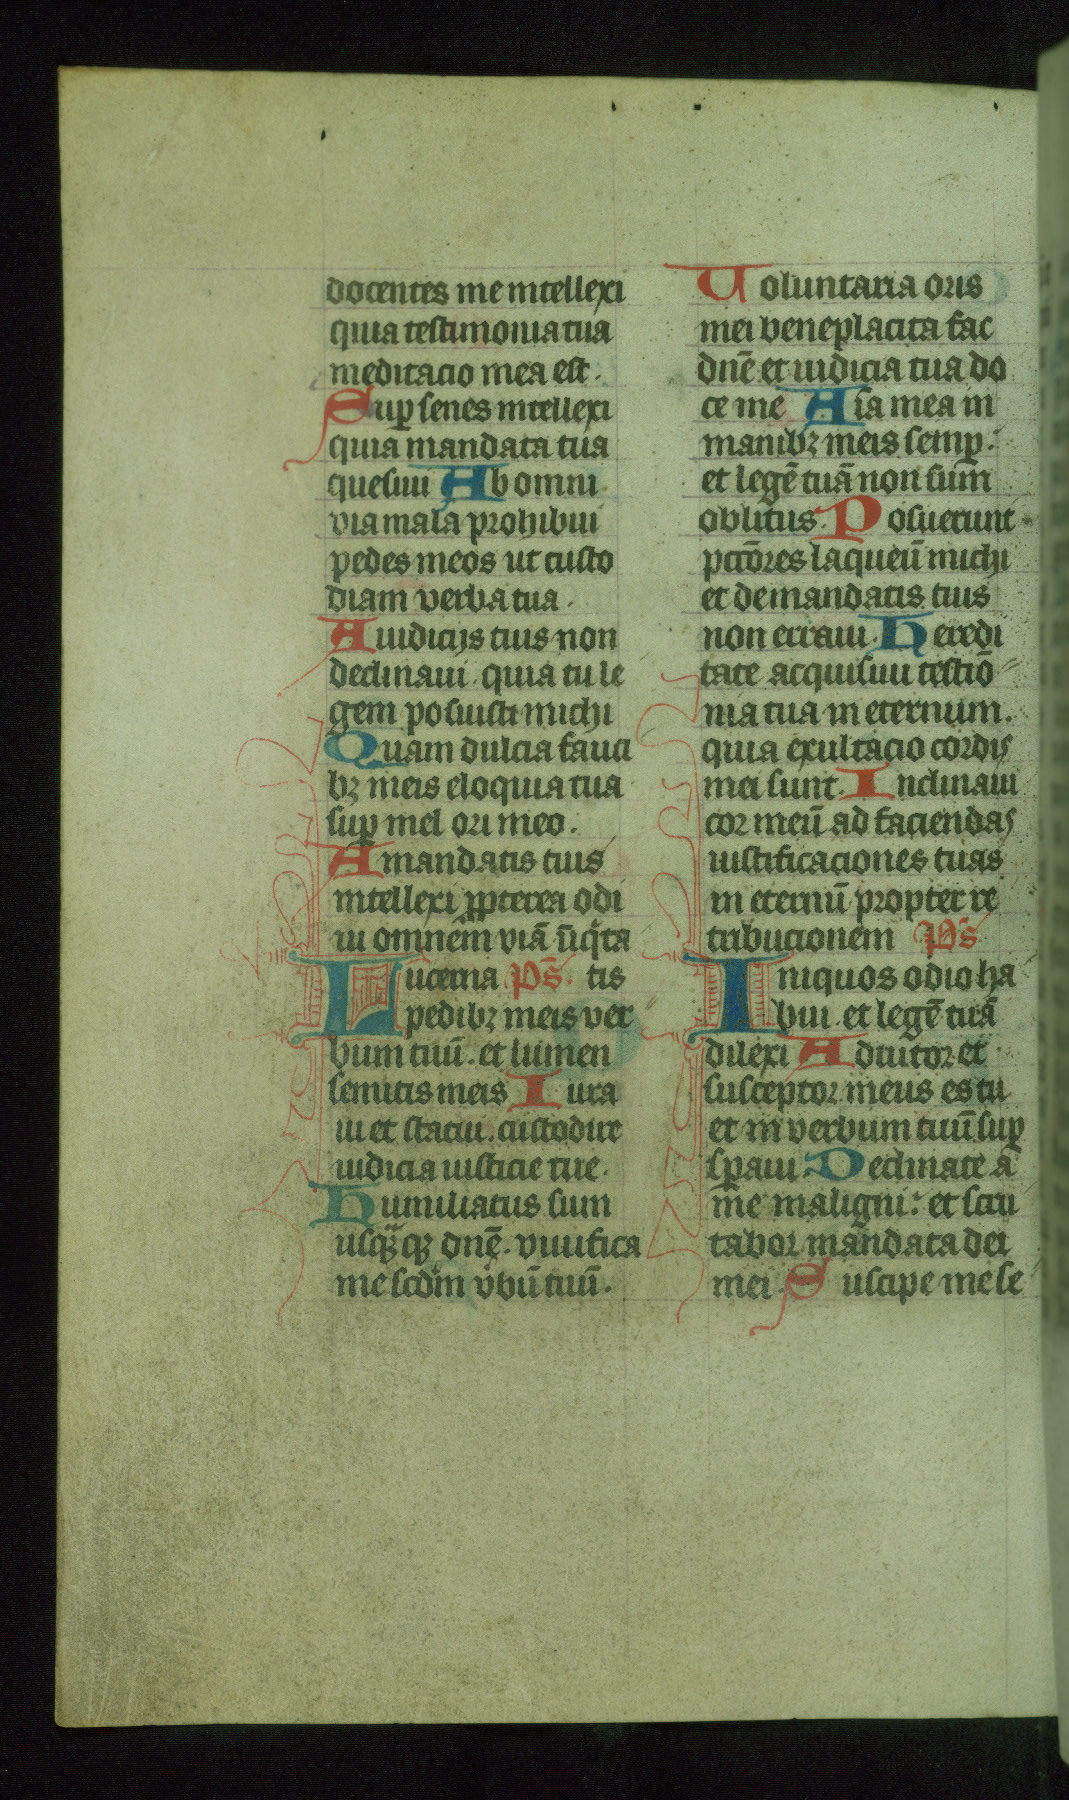 docentes me intellexi
quia testimonia tua
meditacio mea est.
Sup̱ senes intellexi
quia mandata tua
quesiui Ab omni
via mala prohibui
pedes meos ut custo
diam verba tua.
A iudicijs tuis non
declinaui. quia tu le
gem posuisti michi
Quam dulcia fauci
bꝫ meis eloquia tua
sup̱ mel ori meo.
A mandatis tuis
intellexi ꝓpterea odi
ui omnem viā iniq̄ta
Lucerna Ps̄ tis
pedibꝫ meis ver
bum tuū. et lumen
semitis meis Iura
ui et statui. custodire
iudicia iusticie tue.
Humiliatus sum
usqꝫqꝫ dnē. viuifica
me scdm v̄bū tuū.
Voluntaria oris
mei beneplacita fac
dnē et iudicia tua do
ce me Aīa mea in
manibꝫ meis semp̱.
et legē tuā non sum
oblitus. Posuerunt
pctōres laqueū michi
et de mandatis tuis
non erraui. Heredi
tate acquisiui testīo
nia tua in eternum.
quia exultacio cordis
mei sunt. Inclinaui
cor meū ad faciendas
iustificaciones tuas
in eternū propter re
tribucionem Ps̄
Iniquos odio ha
bui. et legē tuā
dilexi Adiutor et
susceptor meus es tu
et in verbum tuū sup̱
sp̱aui. Declinate a
me maligni: et scru
tabor mandata dei
mei. Suscipe me se